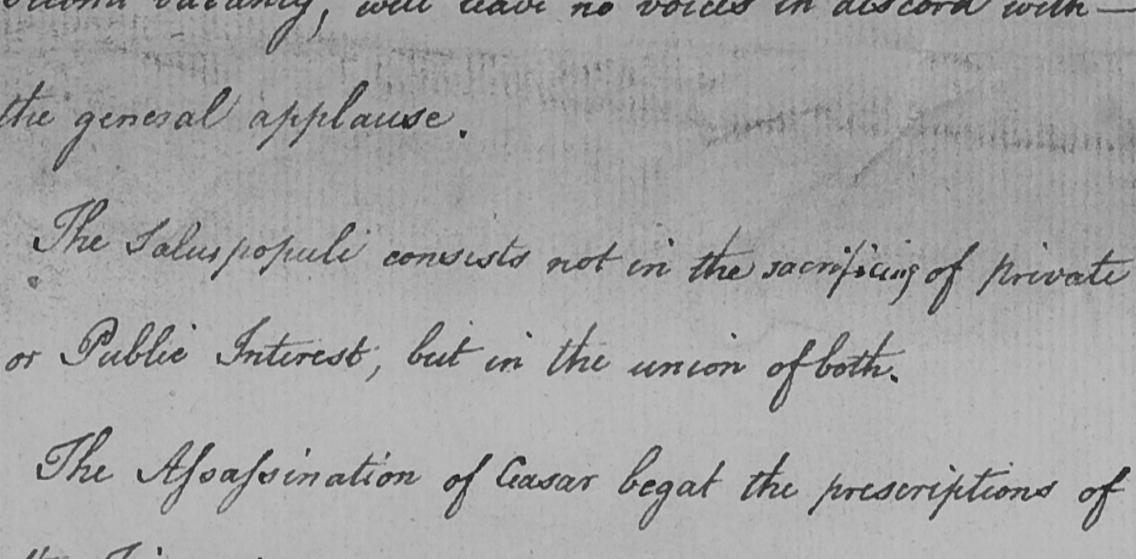 second vacancy, will leave no voices in discord with —
the general applause.
The Salus populi consists not in the sacrificing of private
or Public Interest, but in the union of both.
The Assassination of Ceasar begat the prescriptions of
the